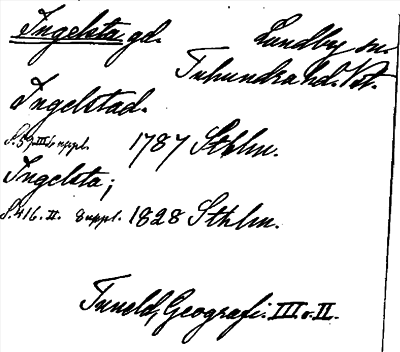 Ingelsta gd. Lundby sn.
Tuhundra hd. Vst.
Ingelstad.
S. 59. III. 6 uppl. 1787 Sthlm.
Ingelsta;
S. 416. II. 8 uppl. 1828 Sthlm.
Tuneld, Geografi. III o. II.